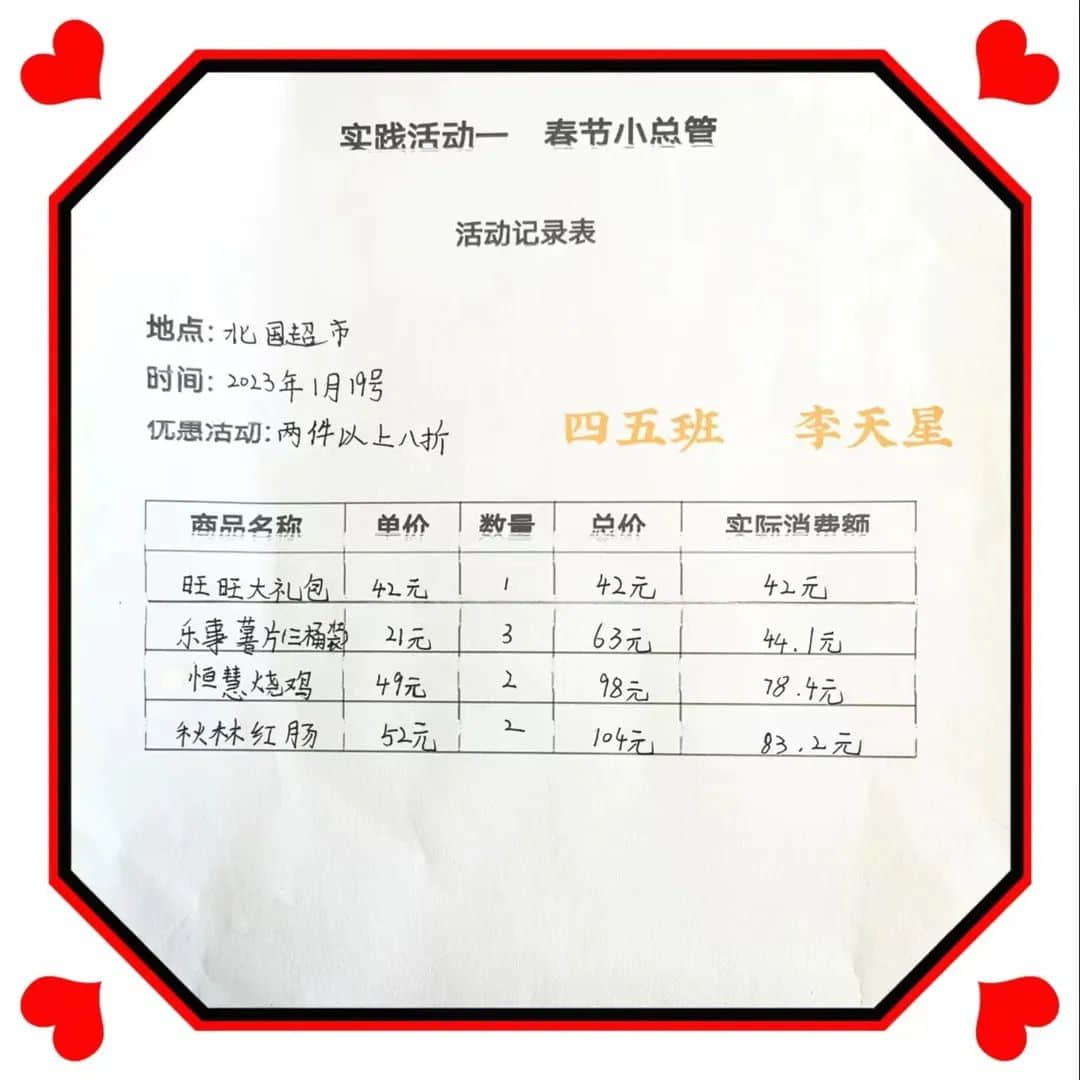 实践活动一 春节小总管
活动记录表
地点：北国超市
时间：2023年1月19号
优惠活动：两件以上八折
四五班 李天星
商品名称 单价 数量 总价 实际消费额
旺旺大礼包 42元 1 42元 42元
乐事薯片三桶装 21元 3 63元 44.1元
恒慧烧鸡 49元 2 98元 78.4元
秋林红肠 52元 2 104元 83.2元